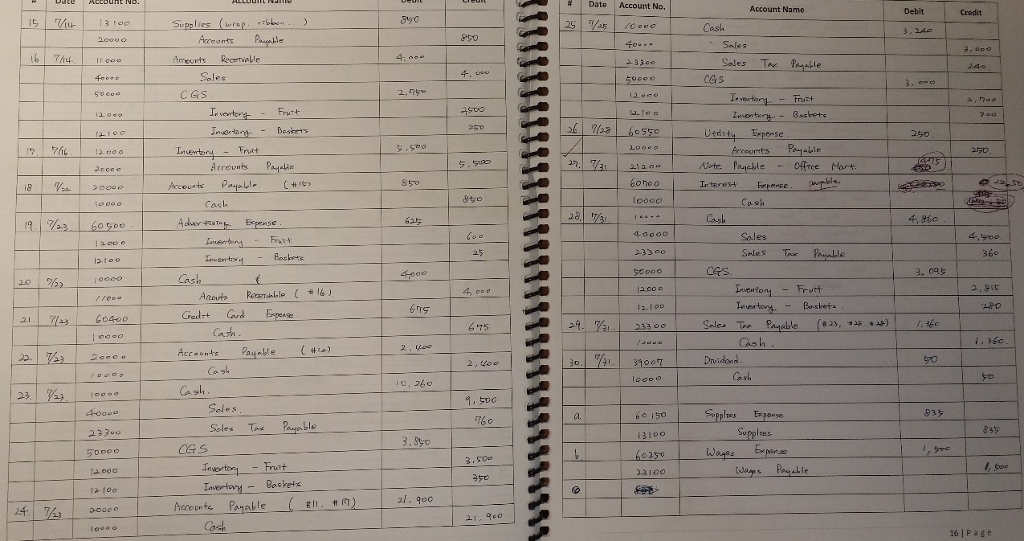 # Date Account No. Account Name Debit Credit
15 7/14 13100 Supplies (wrap, ribbon...) 850
20000 Accounts Payable 850
16 7/14 11000 Accounts Receivable 4,000
40000 Sales 4,000
50000 CGS 2,750
12000 Inventory - Fruit 2500
12100 Inventory - Baskets 250
17. 7/16 12000 Inventory - Fruit 5,500
20000 Accounts Payable 5,500
18. 7/22 20000 Accounts Payable (#15) 850
10000 Cash 850
19. 7/23 60500 Advertising Expense. 625
12000 Inventory - Fruit 600
12100 Inventory - Baskets 25
20 7/23 10000 Cash 4,000
11000 Accounts Receivable (#16) 4,000
21. 7/23 60400 Credit Card Expense 675
10000 Cash. 675
22. 7/23 20000 Accounts Payable (#12) 2,400
10000 Cash 2,400
23 7/23 10000 Cash. 10,260
40000 Sales. 9,500
23300 Sales Tax Payable 760
50000 CGS 3,850
12000 Inventory - Fruit 3,500
12100 Inventory - Baskets 350
24. 7/23 20000 Accounts Payable (#11, #17) 21,900
10000 Cash 21,900
# Date Account No. Account Name Debit Credit
25 7/25 10000 Cash 3,240
40000 Sales 3,000
23300 Sales Tax Payable 240
50000 CGS 3,000
12000 Inventory - Fruit 2,700
12100 Inventory - Baskets 300
26. 7/28 60550 Utility Expense 250
20000 Accounts Payable 250
27. 7/31 21200 Note Payable - Office Mart.
60700 Interest Expense payable
10000 Cash
28. 7/31 10000 Cash 4,860
40000 Sales 4,500
23300 Sales Tax Payable 360
50000 CGS. 3,095
12000 Inventory - Fruit 2,815
12100 Inventory - Baskets 280
29. 7/31. 23300 Sales Tax Payable (#23, #25, #28) 1,360
10000 Cash. 1,360.
30. 7/31. 39007 Dividend. 50
10000 Cash 50
a 60150 Supplies Expense 835
13100 Supplies 835
b 60350 Wages Expense 1,500
23100 Wages Payable 1,500
16 | Page